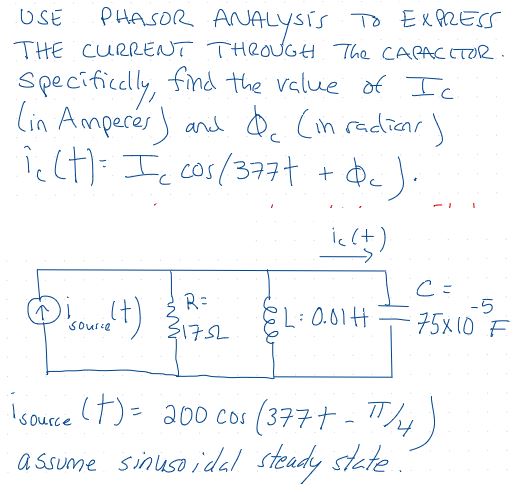 USE PHASOR ANALYSIS TO EXPRESS
THE CURRENT THROUGH The CAPACITOR.
Specifically, find the value of Ic
(in Amperes) and Φc (in radians)
ic(t) = Ic cos(377t + Φc).
ic(t)
isource(t)
R=
17Ω
L: 0.01H
C =
75x10^-5 F
isource(t) = 200 cos(377t - π/4)
assume sinusoidal steady state.